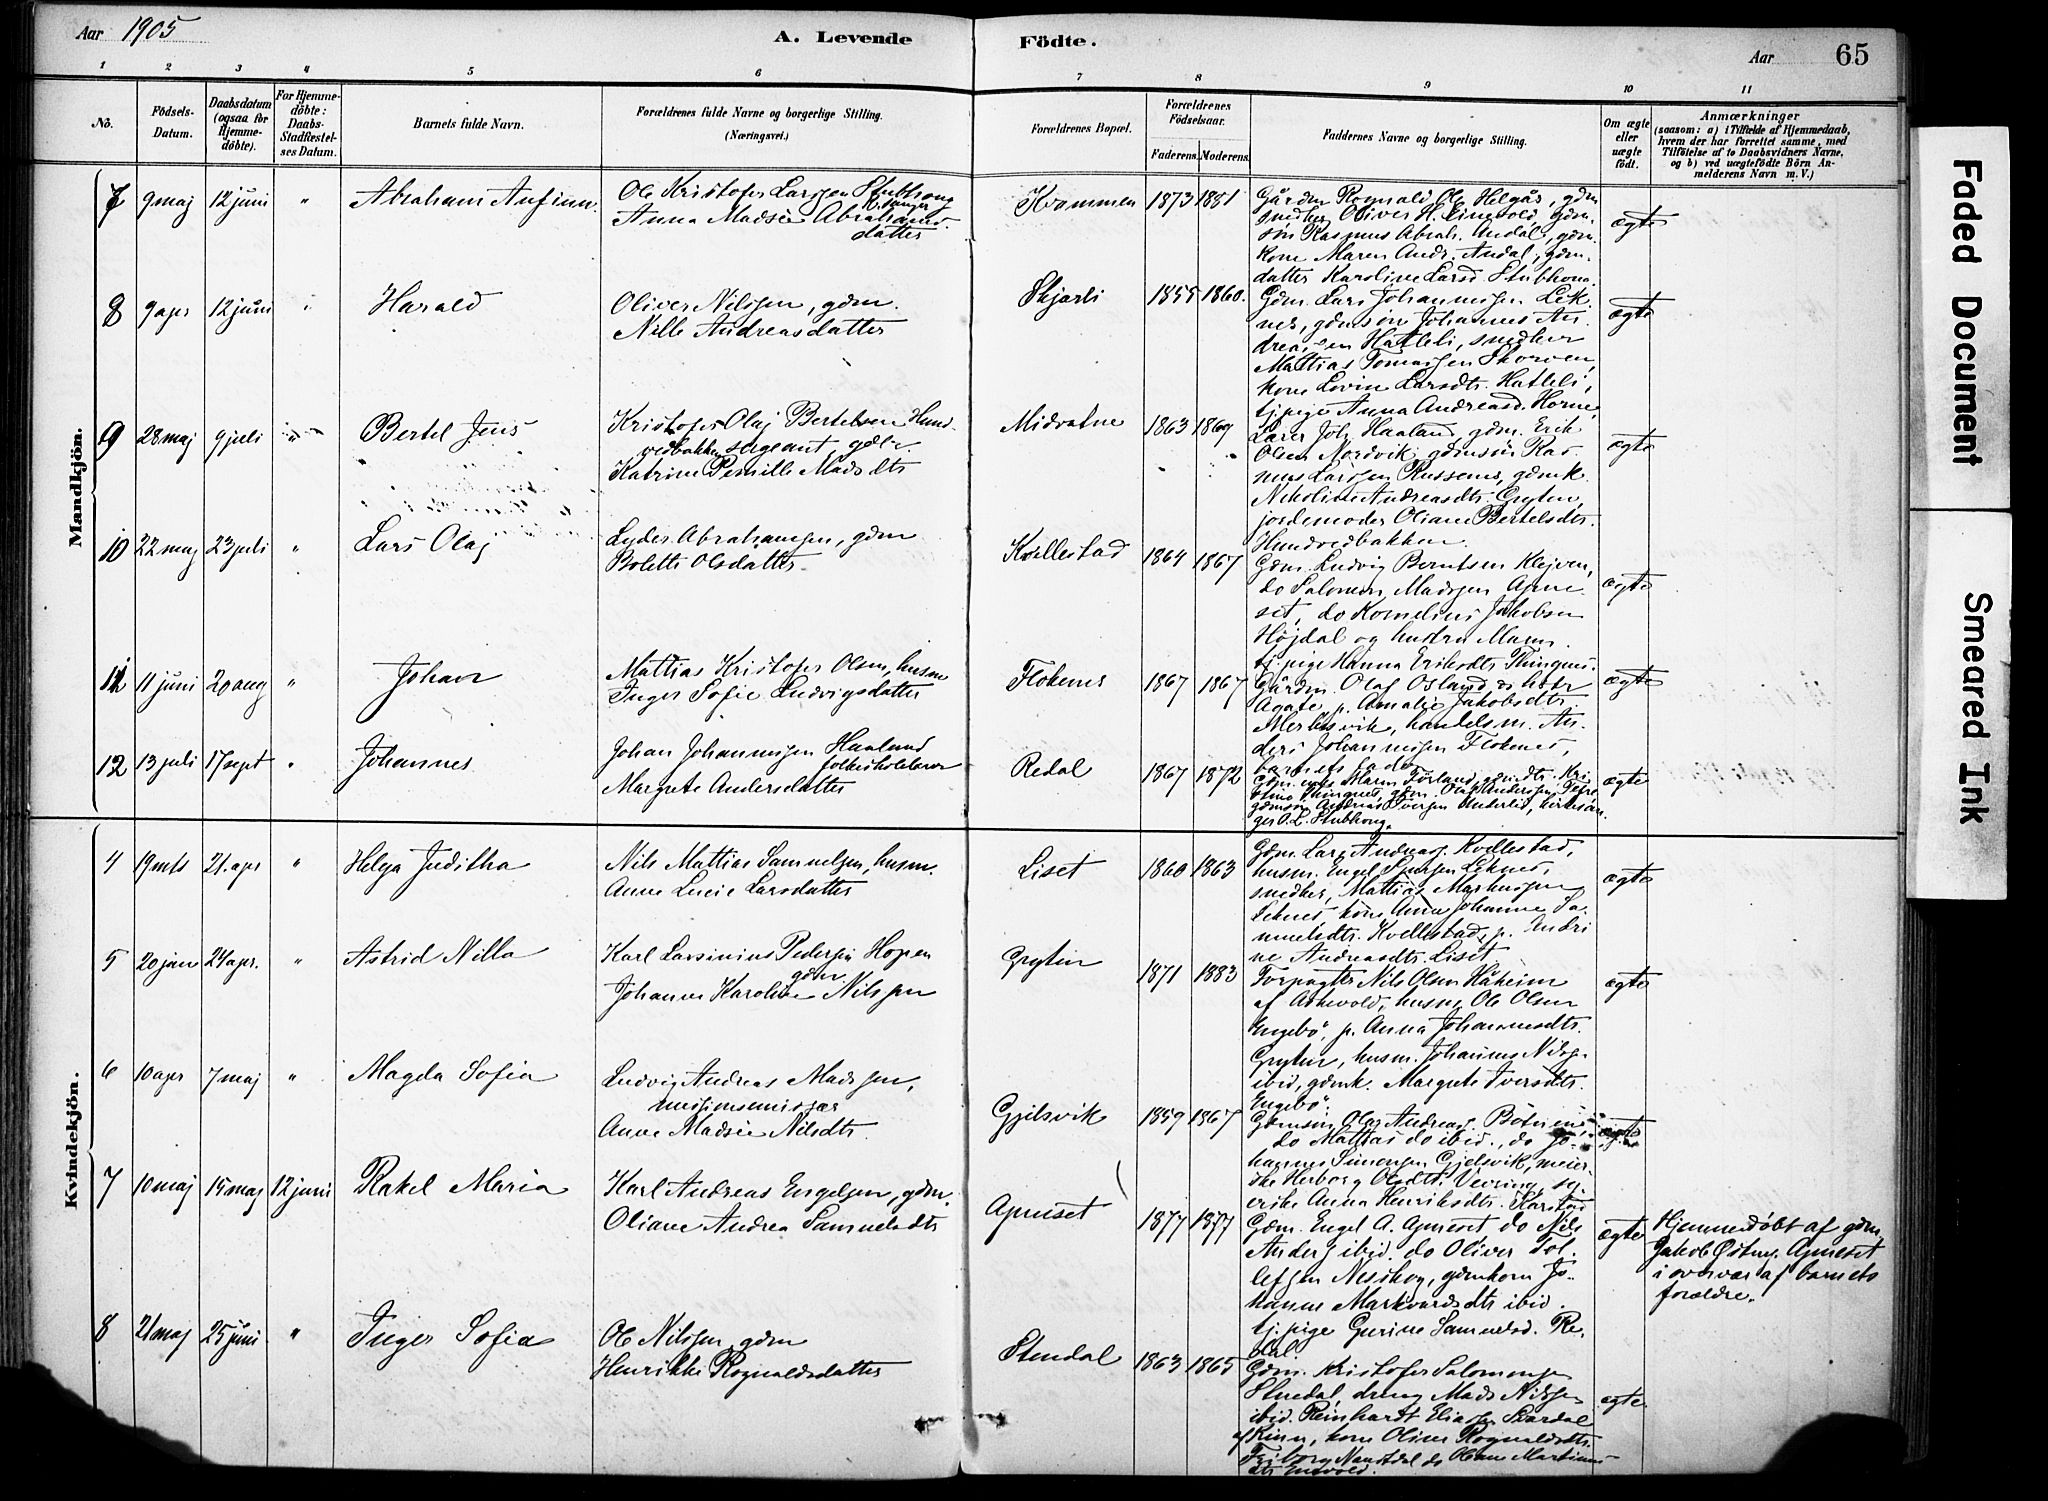 Aar 1905
A. Levende
Födte.
Aar
65
1 2 3 4 5 6 7 8 9 10 11
No.
Födsels-Datum.
Daabsdatum (ogsaa for Hjemme-döbte).
For Hjemme-döbte: Daabs-Stadfæstel-ses Datum.
Barnets fulde Navn.
Forældrenes fulde Navne og borgerlige Stilling.
(Næringsvei.)
Forældrenes Bopæl.
Forældrenes Födselsaar.
Faderens. Moderens.
Faddernes Navne og borgerlige Stilling.
Om ægte eller uægte födt.
Anmærkninger
(saasom: a) i Tilfælde af Hjemmedaab,
hvem der har forrettet samme, med
Tilföielse af to Daabsvidners Navne,
og b) ved uægtefödte Börn An-
melderens Navn m. V.)
Mandkjön.
7 9 maj 12 juni " Abraham Anfinn.
Ole Kristofer Larssen Stubhong
k.sanger
Anna Madsie Abrahams-
datter
Kvammen 1873 1881
Gårdm. Rognald Ols. Helgås, gdm
snedker Oliver H. Eimevold, gdm.
søn Rasmus Abrah. Andal, gdm.
kone Maren Andr. Andal, gdm.
datter Karoline Larsd. Stubhong.
ægte
8 9 apr 12 juni " Harald
Oliver Nilssen, gdm.
Nille Andreasdatter
Skjorli 1855 1860.
Gdm. Lars Johannessen Lek-
nes, gdmsøn Johannes An-
dreassen Hatleli, snedker
Mattias Tomassen Skorven,
kone Lovise Larsdtr. Hatleli,
tj.pige Anna Andreasd. Horne.
ægte
9 28 maj 9 juli " Bertel Jens
Kristofer Olaj Bertelsen Hund-
vedbakken sergeant, gdbr.
Katrine Pernille Madsdtr
Midvatne 1863 1869
Lærer Joh. Haaland, gdm. Erik
Olsen Nordvik, gdmsøn Ras-
mus Larssen Russenes, gdmk.
Nikoline Andreasdtr. Gryten,
jordemoder Oliane Bertelsdtr.
Hundvedbakken.
ægte
10 22 maj 23 juli " Lars Olaj
Lyder Abrahamsen, gdm
Bolette Olsdatter
Kvellestad 1864 1867
Gdm. Ludvig Berntsen Klejven,
do Salomon Madssen Apne-
set, do Kornelius Jakobsen
Højdal og hustru Maren,
tj.pige Hanna Eriksdtr Thingnes.
ægte
11 11 juni 20 aug " Johan
Mattias Kristofer Olsen, husm
Inger Sofie Ludvigsdatter
Flokenes 1867 1867
Gårdm. Olaf Osland & hstr
Agate, p. Amalie Jakobsdtr.
Mertesvik, handelsm. An-
ders Johannessen Flokenes,
barnets fader
ægte
12 13 juli 17 sept " Johannes
Johan Johannessen Haaland
folkeskolelærer
Margrete Andersdatter
Redal 1867 1872
Gdm. Maren Førland, gdmdtr. Kri-
stine Thingnes, gdm. Olaf Anderssen Tefre
gdmsøn Andreas Iversen Underli, kirkesan-
ger O. L. Stubhong.
ægte
Kvindekjön.
4 19 mts 21. apr " Helga Juditha
Nils Mattias Samuelsen, husm.
Anne Lucie Larsdatter
Liset 1860 1863
Gdm. Lars Andreass. Kvellestad,
husm. Engel Leknes,
snedker, Mattias Markussen
Leknes, kone Anne Johanne Sa-
muelsdtr. Kvellestad, p. Andri-
ne Andreasdtr. Liset
ægte
5 20 jan 24 apr. " Astrid Nilla
Karl Larsinius Pedersen Hopen
gdm
Johanne Karoline Nilssen
Gryten 1871 1883
Forpagter Nils Olsen Håheim
af Askevold, husm. Ole Olsen
Engebø, p. Anna Johannesdtr.
Gryten, husm. Johannes Nilss.
ibid, gdmk. Margrete Iversdtr.
Engebø.
ægte
6 10 apr 7 maj " Magda Sofia
Ludvig Andreas Madssen,
missionsemissær
Anne Madsie Nilsdtr.
Gjelsvik 1859 1867
Gdmsøn Olai Andreass. Botnene,
do Mattias do ibid., do Jo-
hannes Simonsen Gjelsvik, meier-
ske Herborg Olsdtr. Vevring, sy-
erske Anna Henriksdtr. Karstad
ægte
7 10 maj 14 maj 12 juni Rakel Maria
Karl Andreas Engelsen, gdm.
Oliane Andrea Samuelsdtr
Apneset 1877 1877
Gdm. Engel A. Apneset do Nils
Anders. ibid. do Oliver Tol-
lefsen Nesskog, gdmkone Jo-
hanne Markvardsdtr ibid.
tj.pige Gurine Samuelsd. Re-
dal.
ægte
Hjemmedøbt af gdm.
Jakob Østens. Apneset
i overvær af barnets
forældre.
8 21 maj 25 juni " Inger Sofia
Ole Nilssen, gdm
Henrikke Rognaldsdatter
Stendal 1863 1865
Gdm. Kristofer Salomonsen
Stendal, dreng Mads Nilssen
ibid. Reinhardt Eliassen Stardal
af Kinn, kone Oline Rognaldsdtr.
Friborg Naustdal do Oline Martinus-
dtr Endvold.
ægte
Faded Document
Smeared Ink